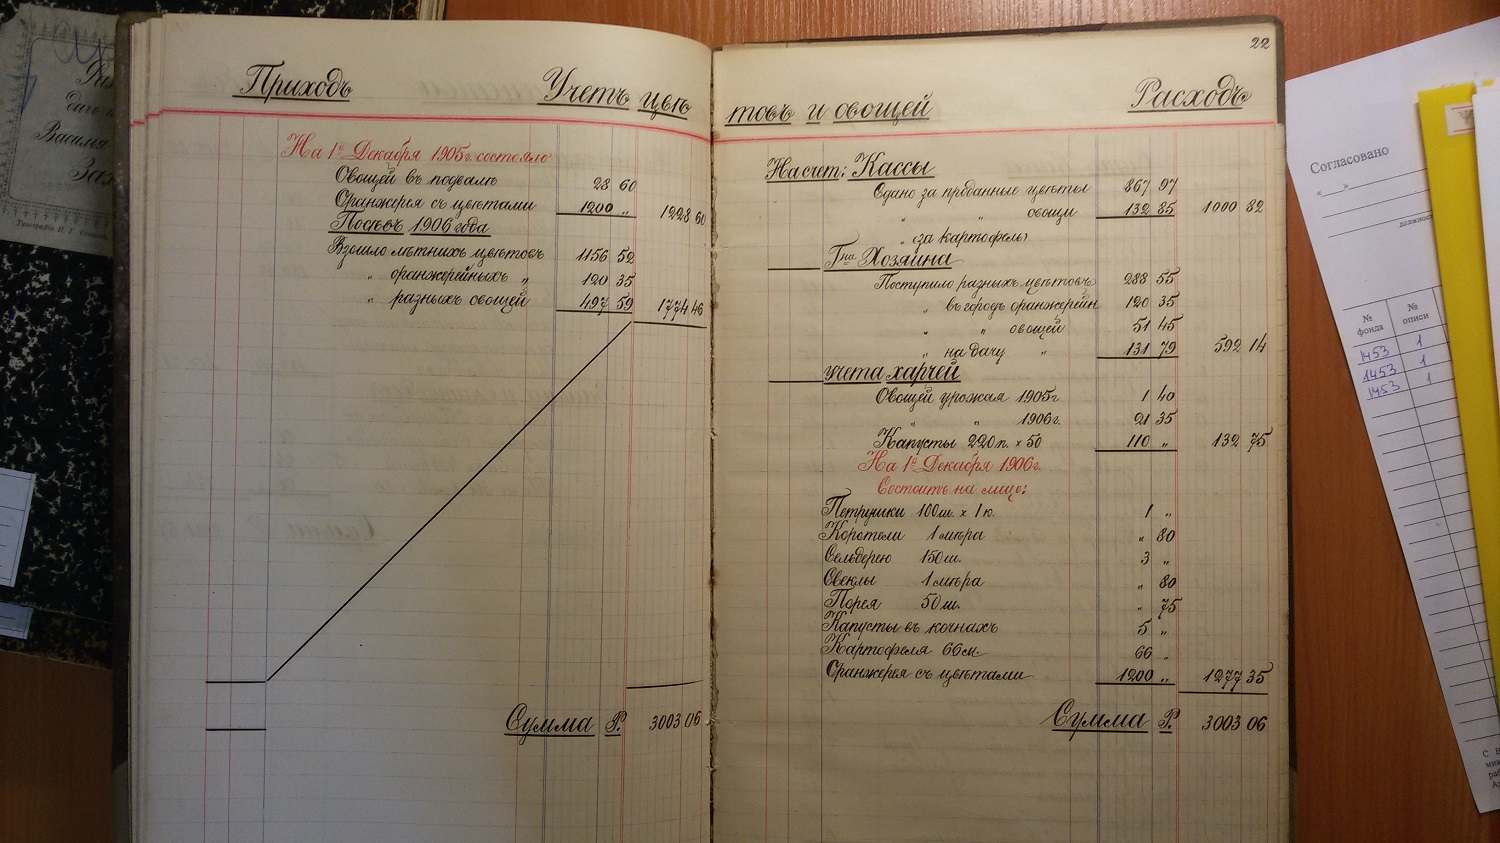 22
Приходъ Учетъ цвѣ
На 1е Декабря 1905г. состояло
Овощей въ подвалѣ 28 60
Оранжерея съ цвѣтами 1200 „ 1228 60
Посѣвъ 1906 года
Взошло лѣтнихъ цвѣтовъ 1156 52
„ оранжерейныхъ „ 120 35
„ разныхъ овощей 497 59 1774 46
Сумма Р. 3003 06
товъ и овощей Расходъ
На счет: Кассы
Сдано за проданные цвѣты 867 97
„ „ овощи 132 85 1000 82
„ за картофель
Гна Хозяина
Поступило разныхъ цвѣтовъ 288 55
„ въ городъ оранжерейн 120 35
„ „ овощей 51 45
„ на дачу „ 131 79 592 14
учета харчей
Овощей урожая 1905г 1 40
„ „ 1906г. 21 35
Капусты 220п. х 50 110 „ 132 75
На 1е Декабря 1906г.
Состоитъ на лицо:
Петрушки 100ш. х 1к. 1 „
Коротели 1 мѣра „ 80
Сельдерею 150ш. 3 „
Свеклы 1 мѣра „ 80
Порея 50ш. „ 75
Капусты въ кочнахъ 5 „
Картофеля 66м. 66 „
Оранжерея съ цвѣтами 1200 „ 1277 35
Сумма Р. 3003 06
Василія
Согласовано
« »
должност
№ фонда № описи
1453 1
1453 1
1453 1